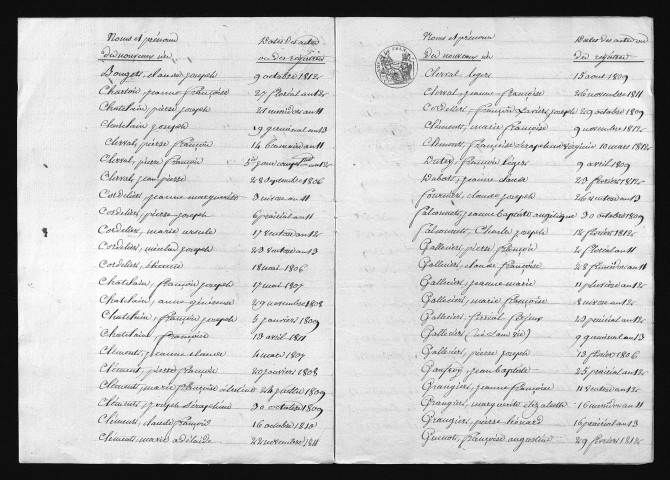 Noms et prénoms Dates des actes
des nouveaux nés ou des registres
Bouget, claude joseph 9 octobre 1812
jeanne françoise 27 floréal an 12
Chatelain, pierre joseph 21 an 11
Chatelain joseph 19 germinal an 13
Clerval, pierre françois 14 brumaire an 11
Clerval, pierre françois 5e jour compl. an 12
Clerval, jean pierre 28 septembre 1806
Cordelier, jeanne marguerite 3 nivose an 11
Cordelier, pierre joseph 6 prairial an 11
Cordelier, marie ursule 17 ventose an 12
Cordelier, nicolas joseph 23 ventose an 13
Cordelier, étienne 18 mai 1806
Chatelain, françois joseph 17 mai 1807
Chatelain, anne génereuse 29 novembre 1808
Chatelain, françois joseph 5 janvier 1809
Chatelain, françoise 13 avril 1811
Clément, jeanne claude 4 mars 1807
Clément, pierre françois 20 janvier 1808
Clément, marie françoise 24 juillet 1809
Clément, joseph séraphin 30 octobre 1809
Clément, claude françois 16 octobre 1810
Clément, marie adélaide 22 novembre 1811
Noms et prénoms Dates des actes ou
des nouveaux nés des registres
Clerval léger 15 aout 1809
Clerval, jeanne françoise 26 novembre 1811
Cordelier, françois xavier joseph 29 octobre 1809
Clément, marie françoise 9 novembre 1812
Clément, françois 10 mars 1812
françois léger 9 avril 1809
jeanne claude 23 février 1812
Fournier, claude joseph 26 ventose an 13
jeanne baptiste angélique 30 octobre 1809
Charles joseph 18 février 1812
Gallecier, pierre françois 2 floréal an 11
Gallecier, claude françoise 28 frimaire an 11
Gallecier, jeanne marie 11 pluviose an 12
Gallecier, marie françoise 8 nivose an 12
Gallecier, 29 prairial an 12
Gallecier 9 germinal an 13
Gallecier, pierre joseph 13 février 1806
jean baptiste 25 prairial an 12
Grangier, jeanne françoise 11 ventose an 12
Grangier, marguerite elizabeth 16 an 11
Grangier, pierre léonard 16 prairial an 13
Guenot, françoise augustine 29 février 1812